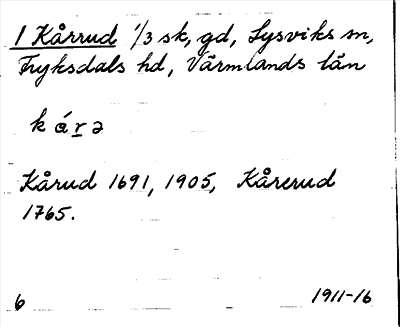 1 Kårrud 1/3 sk, gd, Lysviks sn,
Fryksdals hd, Värmlands län
k ǻ r ə
Kårud 1691, 1905, Kårerud
1765.
6 1911-16